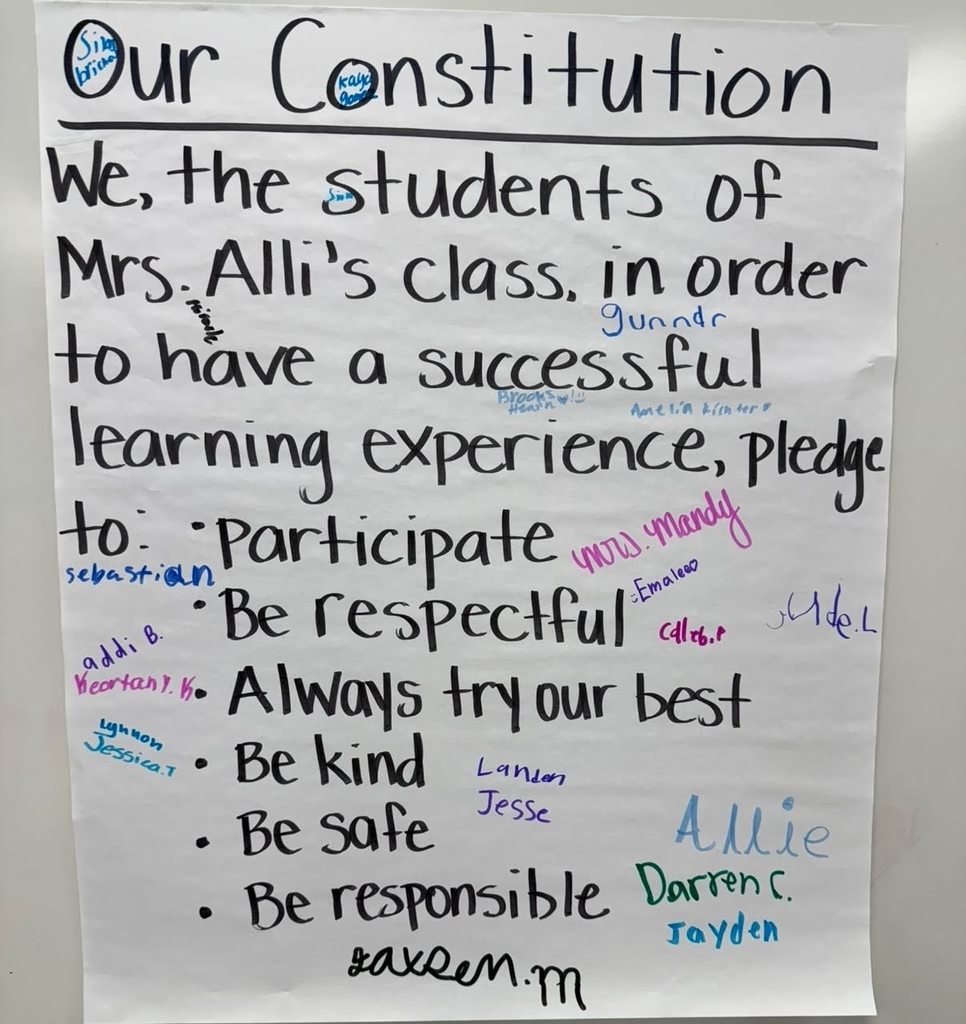 Our Constitution
We, the students of
Mrs. Alli's class, in order
gunnar
to have a successful
Brooks
Amelia
learning experience, pledge
to: • Participate Mrs. Mandy
sebastian
• Be respectful
Caleb.P
Jude.L
addi B.
• Always try our best
Jessica.T
• Be kind
Landen
Jesse
• Be safe
Allie
• Be responsible
Darren C.
Jayden